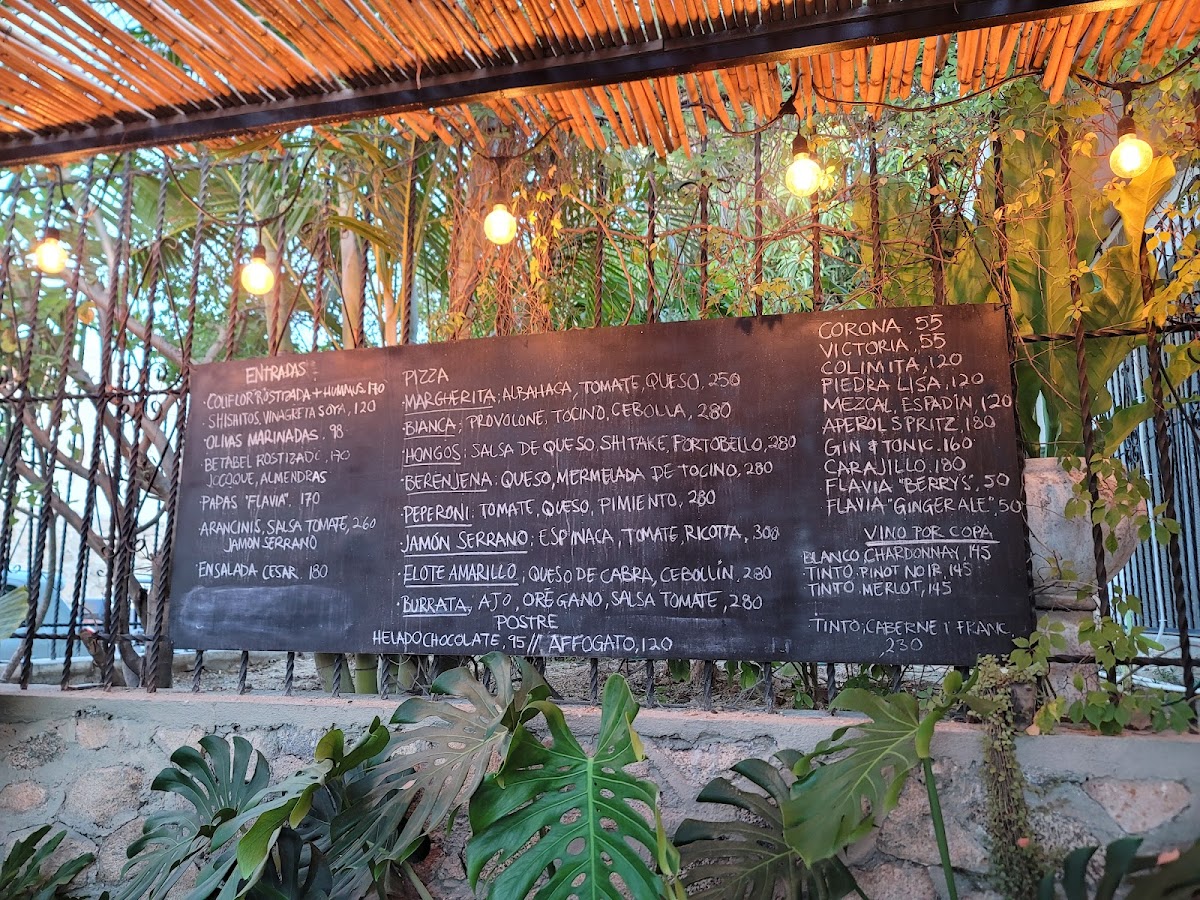 ENTRADAS:
·COLIFLOR ROSTIZADA + HUMMUS. 170
·SHISHITOS, VINAGRETA SOYA, 120
·OLIVAS MARINADAS. 98
BETABEL ROSTIZADO, 170
JOCOQUE, ALMENDRAS
·PAPAS "FLAVIA". 170
·ARANCINIS, SALSA TOMATE, 260
JAMÓN SERRANO
·ENSALADA CESAR. 180
PIZZA
·MARGHERITA; ALBAHACA, TOMATE, QUESO, 250
·BIANCA; PROVOLONE, TOCINO, CEBOLLA, 280
·HONGOS; SALSA DE QUESO, SHITAKE, PORTOBELLO, 280
·BERENJENA: QUESO, MERMELADA DE TOCINO, 280
·PEPERONI; TOMATE, QUESO, PIMIENTO, 280
JAMÓN SERRANO; ESPINACA, TOMATE, RICOTTA, 300
·ELOTE AMARILLO; QUESO DE CABRA, CEBOLLÍN, 280
·BURRATA, AJO, ORÉGANO, SALSA TOMATE, 280
POSTRE
HELADO CHOCOLATE, 95 // AFFOGATO, 120
CORONA. 55
VICTORIA, 55
COLIMITA, 120
PIEDRA LISA, 120
MEZCAL, ESPADÍN 120
APEROL SPRITZ, 180
GIN & TONIC. 160
CARAJILLO. 180
FLAVIA "BERRY'S", 50
FLAVIA "GINGER ALE", 50
VINO POR COPA
BLANCO, CHARDONNAY, 145
TINTO, PINOT NOIR, 145
TINTO, MERLOT, 145
TINTO; CABERNET FRANC
, 230